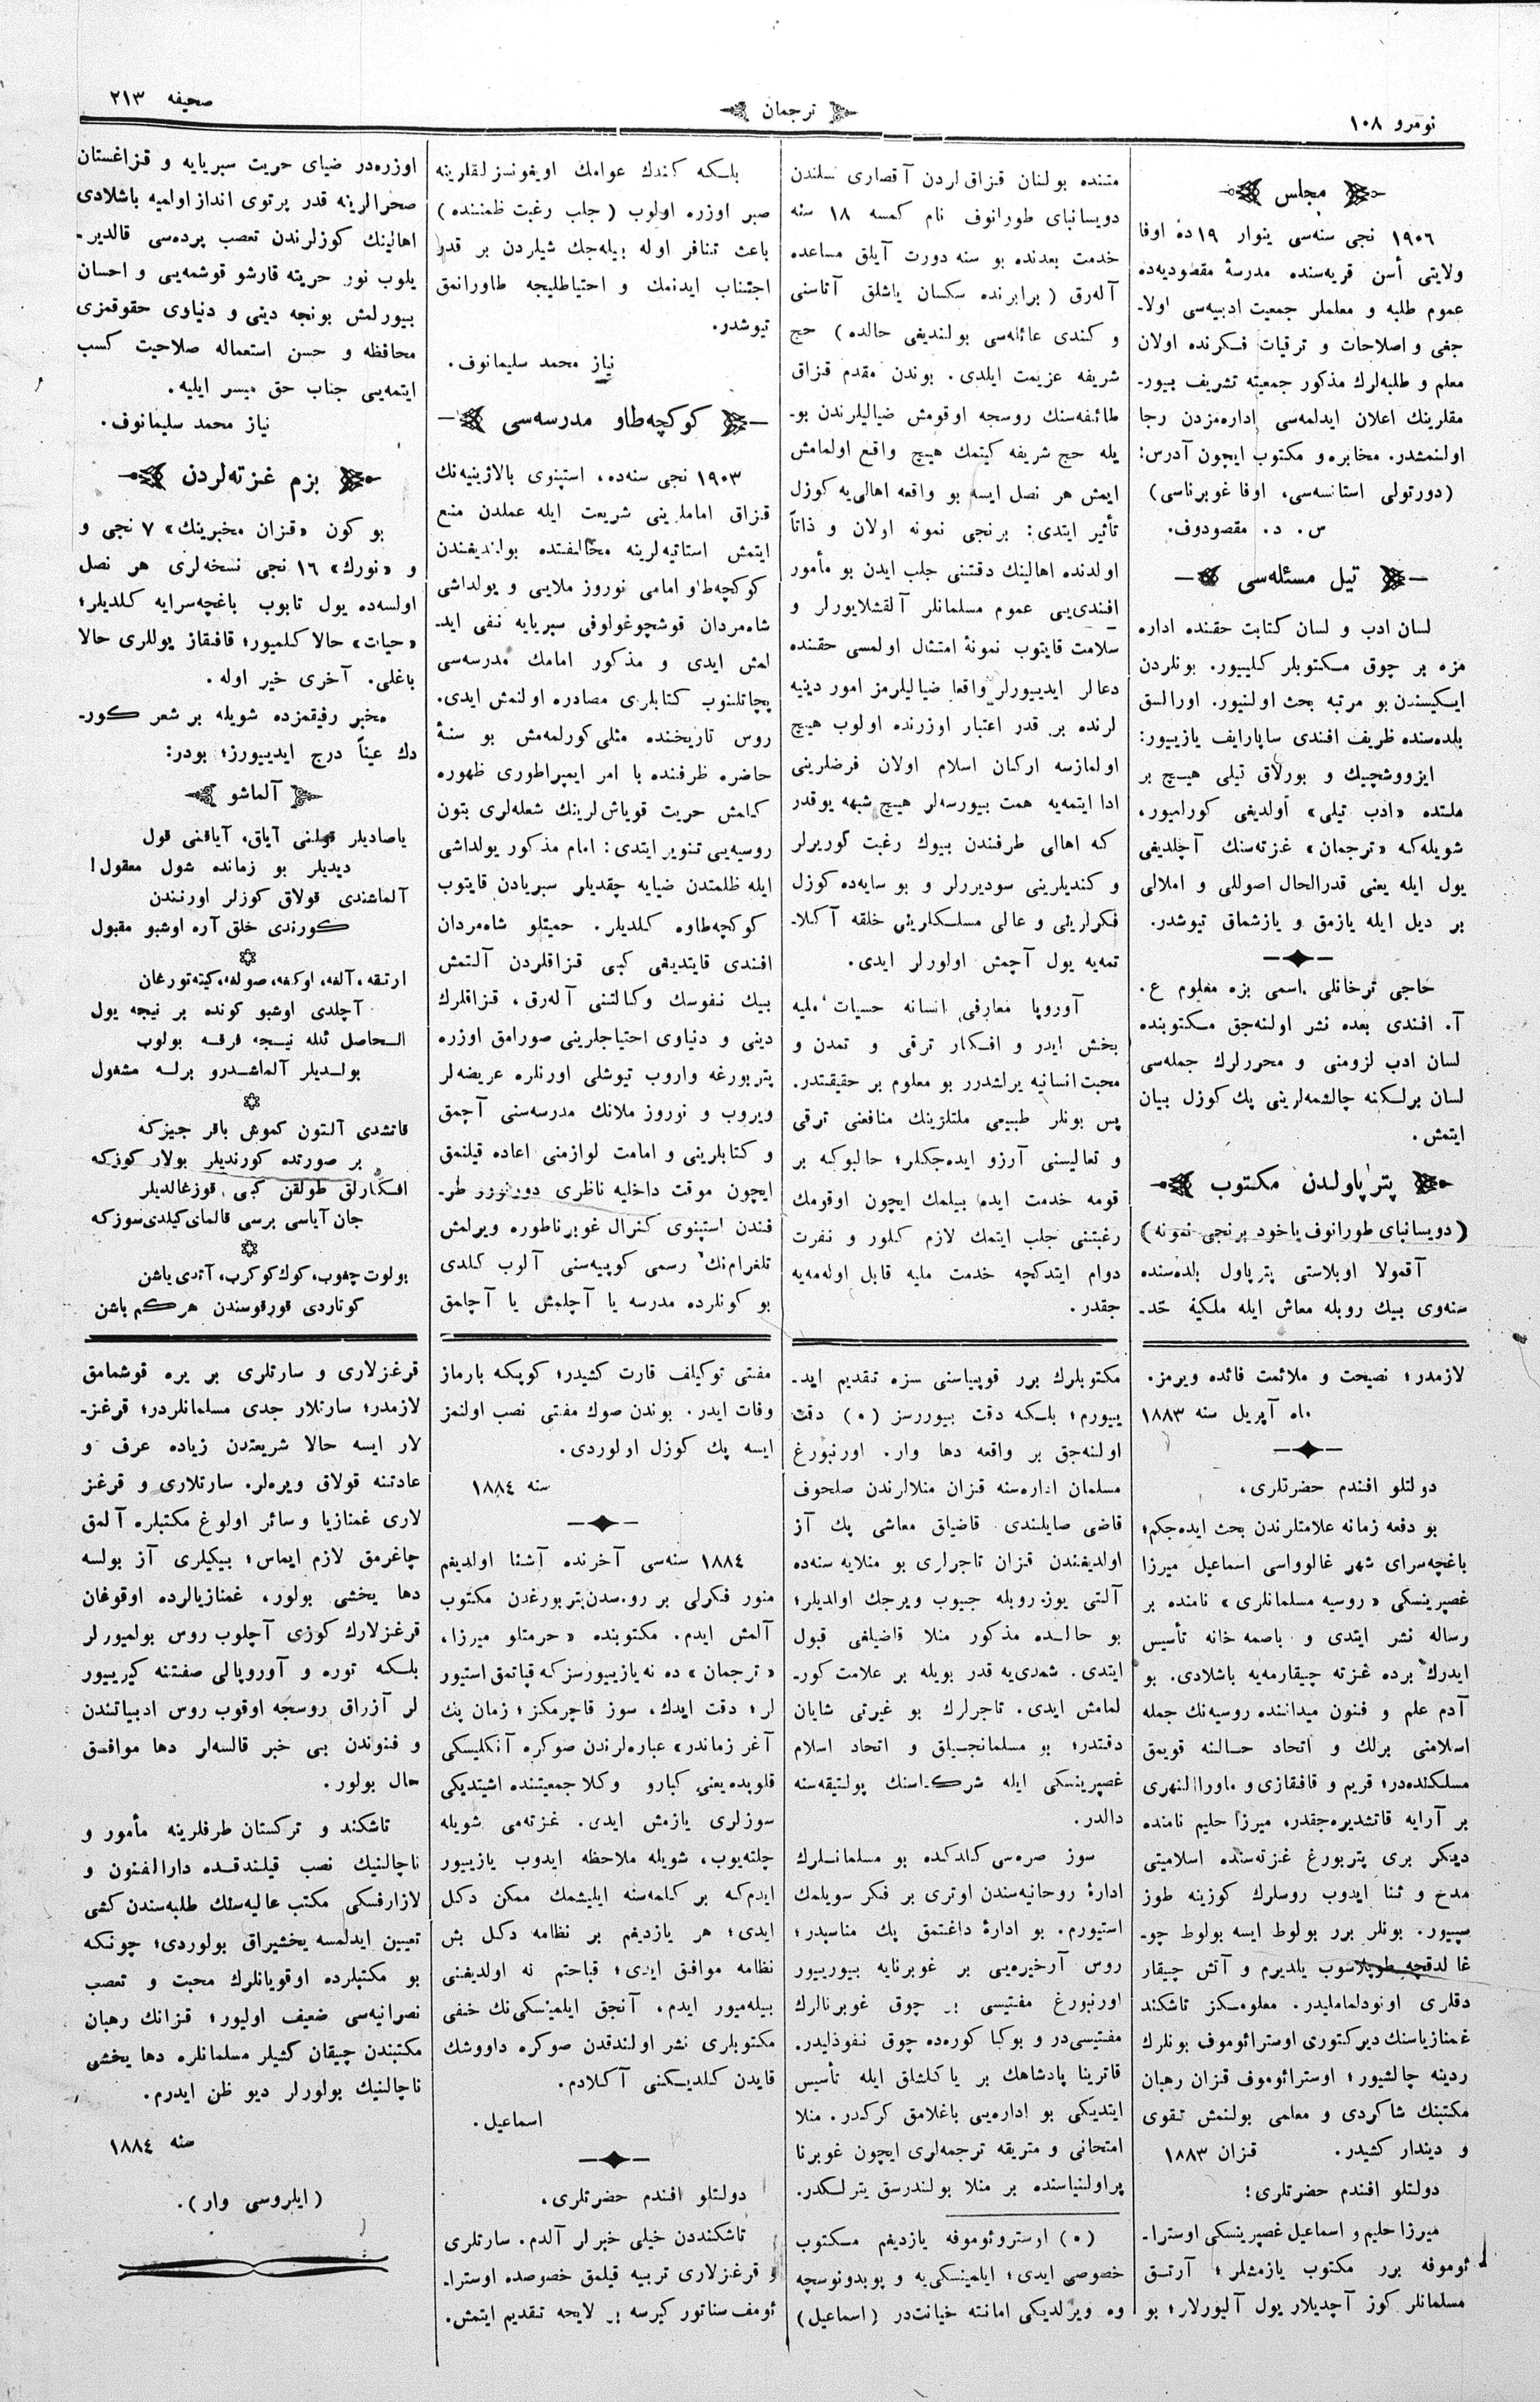 نومرو ۱۰۸
ترجمان
صحیفه ۲۱۳
مجلس
۱۹۰۶ نجی سنه‌سی ینوار ۱۹ده اوفا
ولایتی أسن قریه‌سنده مدرسهٔ مقصودیه‌ده
عموم طلبه و معلملر جمعیت ادبیه‌سی اولا-
جغی و اصلاحات و ترقیات فکرنده اولان
معلم و طلبه‌لرك مذکور جمعیته تشریف بیور-
مقلرینك اعلان ایدلمه‌سی اداره‌مزدن رجا
اولنمشدر. مخابره و مکتوب ایچون آدرس:
(دورتولی استانسه‌سی، اوفا غوبرناسی)
س. د. مقصودوف.
تیل مسئله‌سی
لسان ادب و لسان کتابت حقنده اداره
مزه بر چوق مکتوبلر کلییور. بونلردن
ایکیسندن بو مرتبه بحث اولنیور. اورالسق
بلده‌سنده ظریف افندی ساپارایف یازییور:
ایزووشچیك و بورلاق تیلی هیچ بر
ملتده «ادب تیلی» اولدیغی کورلمیور،
شویله‌که «ترجمان» غزته‌سنك آچلدیغی
یول ایله یعنی قدرالحال اصوللی و املالی
بر دیل ایله یازمق و یازشماق تیوشدر.
حاجی ترخانلی اسمی بزه معلوم ع.
آ. افندی بعده نشر اولنه‌جق مکتوبنده
لسان ادب لزومنی و محررلرك جمله‌سی
لسان برلکنه چالشمه‌لرینی پك کوزل بیان
ایتمش.
پترپاولدن مکتوب
(دویسانبای طورانوف یاخود برنجی نمونه)
آقمولا اوبلاستی پترپاول بلده‌سنده
سنه‌وی بیك روبله معاش ایله ملکیه خد-
متنده بولنان قزاق‌لردن آقصاری نسلندن
دویسانبای طورانوف نام کمسه ۱۸ سنه
خدمت بعدنده بو سنه دورت آیلق مساعده
آله‌رق (برابرنده سکسان یاشلق آناسنی
و کندی عائله‌سی بولندیغی حالده) حج
شریفه عزیمت ایلدی. بوندن مقدم قزاق
طائفه‌سنك روسجه اوقومش ضیالیلرندن بو-
یله حج شریفه کیتمك هیچ واقع اولمامش
ایمش هر نصل ایسه بو واقعه اهالی‌یه کوزل
تأثیر ایتدی: برنجی نمونه اولان و ذاتاً
اولدنده اهالینك دقتنی جلب ایدن بو مأمور
افندی‌یی عموم مسلمانلر آلقشلایورلر و
سلامت قایتوب نمونهٔ امتثال اولمسی حقنده
دعالر ایدییورلر واقعا ضیالیلرمز امور دینیه
لرنده بر قدر اعتبار اوزرنده اولوب هیچ
اولمازسه ارکان اسلام اولان فرضلرینی
ادا ایتمه‌یه همت بیورسه‌لر هیچ شبهه یوقدر
که اهالی طرفندن بیوك رغبت کوریرلر
و کندیلرینی سودیررلر و بو سایه‌ده کوزل
فکرلرینی و عالی مسلکلرینی خلقه آکلا-
تمه‌یه یول آچمش اولورلر ایدی.
آوروپا معارفی انسانه حسیات ملیه
بخش ایدر و افکار ترقی و تمدن و
محبت انسانیه یرلشدرر بو معلوم بر حقیقتدر.
پس بونلر طبیعی ملتلرینك منافعنی ترقی
و تعالیسنی آرزو ایده‌جکلر؛ حالبوکه بر
قومه خدمت ایده بیلمك ایچون اوقومك
رغبتنی جلب ایتمك لازم کلور و نفرت
دوام ایتدکچه خدمت ملیه قابل اوله‌مه‌یه
جقدر.
بلکه کندك عوامك اویغونسزلقلرینه
صبر اوزره اولوب (جلب رغبت ظمننده)
باعث تنافر اوله بیله‌جك شیلردن بر قدر
اجتناب ایدنمك و احتیاطلیجه طاورانمق
تیوشدر.
نیاز محمد سلیمانوف.
کوکچه‌طاو مدرسه‌سی
۱۹۰۳ نجی سنه‌ده، استپنوی بالاژینیه‌نك
قزاق امامارینی شریعت ایله عملدن منع
ایتمش استاتیه‌لرینه مخالفتده بولندیغندن
کوکچه‌طاو امامی نوروز ملایی و یولداشی
شاه‌مردان قوشچوغولوفی سبریایه نفی اید-
لمش ایدی و مذکور امامك مدرسه‌سی
پچاتلنوب کتابلری مصادره اولنمش ایدی.
روس تاریخنده مثلی کورلمه‌مش بو سنهٔ
حاضره ظرفنده با امر ایمپراطوری ظهوره
کلمش حریت قویاش‌لرینك شعله‌لری بتون
روسیه‌یی تنویر ایتدی: امام مذکور یولداشی
ایله ظلمتدن ضیایه چقدیلر سبریادن قایتوب
کوکچه‌طاوه کلدیلر. حمیتلو شاه‌مردان
افندی قایتدیغی کبی قزاقلردن آلتمش
بیك نفوسك وکالتنی آله‌رق، قزاقلرك
دینی و دنیاوی احتیاجلرینی صورامق اوزره
پتربورغه واروب تیوشلی اورنلره عریضه‌لر
ویروب و نوروز ملانك مدرسه‌سنی آچمق
و کتابلرینی و امامت لوازمنی اعاده قیلنمق
ایچون موقت داخلیه ناظری دورنوور طر-
فندن استپنوی کنرال غوبرناطوره ویرلمش
تلغرام‌نك رسمی کوپیه‌سنی آلوب کلدی
بو کونلرده مدرسه یا آچلمش یا آچلمق
اوزره‌در ضیای حریت سبریایه و قزاغستان
صحرالرینه قدر پرتوی انداز اولمیه باشلادی
اهالینك کوزلرندن تعصب پرده‌سی قالدیر-
یلوب نور حریته قارشو قوشمه‌یی و احسان
بیورلمش بونجه دینی و دنیاوی حقوقمزی
محافظه و حسن استعماله صلاحیت کسب
ایتمه‌یی جناب حق میسر ایلیه.
نیاز محمد سلیمانوف.
بزم غزته‌لردن
بو کون «قزان مخبرینك» ۷ نجی و
و «نورك» ۱۶ نجی نسخه‌لری هر نصل
اولسه‌ده یول تابوب باغچه‌سرایه کلدیلر؛
«حیات» حالا کلمیور؛ قافقاز یوللری حالا
باغلی. آخری خیر اوله.
مخبر رفیقمزده شویله بر شعر کور-
دك عیناً درج ایدییورز؛ بودر:
آلماشو
یاصادیلر قولنی آیاق، آیاقنی قول
دیدیلر بو زمانده شول معقول!
آلماشندی قولاق کوزلر اورنندن
کورندی خلق آره اوشبو مقبول
ارتقه، آلفه، اوکغه، صولغه، کیته‌تورغان
آچلدی اوشبو کونده بر نیجه یول
الحاصل ئلله نیجه فرقه بولوب
بولدیلر آلماشدرو برله مشغول
قاتشدی آلتون کموش باقر جیزکه
بر صورتده کورندیلر بولار کوزکه
افکارلق طولقن کبی قوزغالدیلر
جان آیاسی برسی قالمای کیلدی سوزکه
بولوت چغوب، کوك کوکرب، آتدی یاشن
کوتاردی قورقوسندن هرکم باشن
لازمدر؛ نصیحت و ملائمت فائده ویرمز.
ماه آپریل سنه ۱۸۸۳
دولتلو افندم حضرتلری،
بو دفعه زمانه علامتلرندن بحث ایده‌جکم؛
باغچه‌سرای شهر غالوواسی اسماعیل میرزا
غصپرینسکی «روسیه مسلمانلری» نامنده بر
رساله نشر ایتدی و باصمه خانه تأسیس
ایدرك برده غزته چیقارمه‌یه باشلادی. بو
آدم علم و فنون میداننده روسیه‌نك جمله
اسلامنی برلك و اتحاد حالنه قویمق
مسلکنده‌در؛ قریم و قافقازی و ماوراالنهری
بر آرایه قاتشدیره‌جقدر، میرزا حلیم نامنده
دیکر بری پتربورغ غزته‌سنده اسلامیتی
مدح و ثنا ایدوب روسلرك کوزینه طوز
سپیور. بونلر برر بولوط ایسه بولوط چو-
غالدقچه طوپلاسوب یلدیرم و آتش چیقار
دقلری اونودلماملیدر. معلومکز تاشکند
غمنازیاسنك دیرکتوری اوستراثوموف بونلرك
ردینه چالشیور؛ اوستراثوموف قزان رهبان
مکتبنك شاکردی و معلمی بولنمش تقوی
و دیندار کشیدر. قزان ۱۸۸۳
دولتلو افندم حضرتلری!
میرزا حلیم و اسماعیل غصپرینسکی اوسترا-
ئوموفه برر مکتوب یازمشلر؛ آرتق
مسلمانلر کوز آچدیلار یول آلیورلار؛ بو
مکتوبلرك برر قوپیاسنی سزه تقدیم اید-
ییورم؛ بلکه دقت بیوررسز (٥) دقت
اولنه‌جق بر واقعه دها وار. اورنبورغ
مسلمان اداره‌سنه قزان منلالرندن صلحوف
قاضی صایلندی قاضیلق معاشی پك آز
اولدیغندن قزان تاجرلری بو منلایه سنه‌ده
آلتی یوز روبله جیوب ویرجك اولدیلر؛
بو حالده مذکور منلا قاضیلغی قبول
ایتدی. شمدی‌یه قدر بویله بر علامت کور-
لمامش ایدی. تاجرلرك بو غیرتی شایان
دقتدر؛ بو مسلمانجیلق و اتحاد اسلام
غصپرینسکی ایله شرکاسنك پولتیقه‌سنه
دالدر.
سوز صره‌سی کلدکده بو مسلمانلرك
ادارهٔ روحانیه‌سندن اوتری بر فکر سویلمك
استیورم. بو ادارهٔ داغتمق پك مناسبدر؛
روس آرخیره‌یی بر غوبرنایه بیورییور
اورنبورغ مفتیسی بر چوق غوبرنالرك
مفتیسی‌در و بوکا کوره‌ده چوق نفوذلیدر.
قاترینا پادشاهك بر یاکلشلق ایله تأسیس
ایتدیکی بو اداره‌یی باغلامق کرکدر. منلا
امتحانی و متریقه ترجمه‌لری ایچون غوبرنا
پراولنیاسنده بر منلا بولندرسق یترلکدر.
(٥) اوستروئوموفه یازدیغم مکتوب
خصوصی ایدی؛ ایلمینسکی‌یه و پوبدونوسچه
وه ویرلدیکی امانته خیانت‌در (اسماعیل)
مفتی توکیلف قارت کشیدر؛ کوپکه بارماز
وفات ایدر. بوندن صوك مفتی نصب اولنمز
ایسه پك کوزل اولوردی.
سنه ۱۸۸٤
۱۸۸٤ سنه‌سی آخرنده آشنا اولدیغم
منور فکرلی بر روسدن پتربورغدن مکتوب
آلمش ایدم. مکتوبنده «حرمتلو میرزا،
«ترجمان» ده نه یازییورسزکه قپاتمق استیور
لر؛ دقت ایدك، سوز قاچرمکز؛ زمان پك
آغر زماندر» عباره‌لرندن صوکره آنکلیسکی
قلوپده یعنی کبارو وکلا جمعیتنده اشیتدیکی
سوزلری یازمش ایدی. غزته‌می شویله
چلته‌یوب، شویله ملاحظه ایدوب یازییور
ایدم‌که بر کلمه‌سنه ایلیشمك ممکن دکل
ایدی؛ هر یازدیغم بر نظامه دکل بش
نظامه موافق ایدی؛ قباحتم نه اولدیغنی
بیله‌میور ایدم، آنجق ایلمینسکی‌نك خفی
مکتوبلری نشر اولندقدن صوکره داووشك
قایدن کلدیکنی آکلادم.
اسماعیل.
دولتلو افندم حضرتلری،
تاشکنددن خیلی خبرلر آلدم. سارتلری
و قرغزلاری تربیه قیلمق خصوصده اوسترا-
ئومف سناتور کیرسه بر لایحه تقدیم ایتمش.
قرغزلاری و سارتلری بر یره قوشمامق
لازمدر؛ سارتلار جدی مسلمانلردر؛ قرغز-
لار ایسه حالا شریعتدن زیاده عرف و
عادتنه قولاق ویره‌لر. سارتلاری و قرغز
لاری غمنازیا وسائر اولوغ مکتبلره آلمق
چاغرمق لازم ایماس؛ بیکیلری آز بولسه
دها یخشی بولور، غمنازیالرده اوقوغان
قرغزلارك کوزی آچلوب روس بولمیورلر
بلکه توره و آوروپالی صفتنه کیرییور
لر آزراق روسجه اوقوب روس ادبیاتندن
و فنوندن بی خبر قالسه‌لر دها موافق
حال بولور.
تاشکند و ترکستان طرفلرینه مأمور و
ناچالنیك نصب قیلندقده دارالفنون و
لازارفسکی مکتب عالیه‌سنك طلبه‌سندن کشی
تعیین ایدلمسه یخشیراق بولوردی؛ چونکه
بو مکتبلرده اوقویانلرك محبت و تعصب
نصرانیه‌سی ضعیف اولیور؛ قزانك رهبان
مکتبندن چیقان کشیلر مسلمانلره دها یخشی
ناچالنیك بولورلر دیو ظن ایدرم.
سنه ۱۸۸٤
(ایلروسی وار).